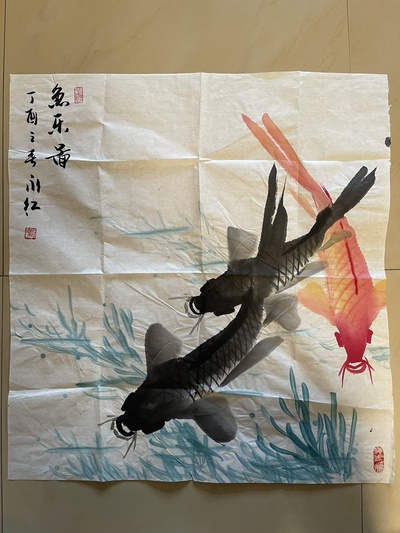 鱼乐图
丁酉之春永红